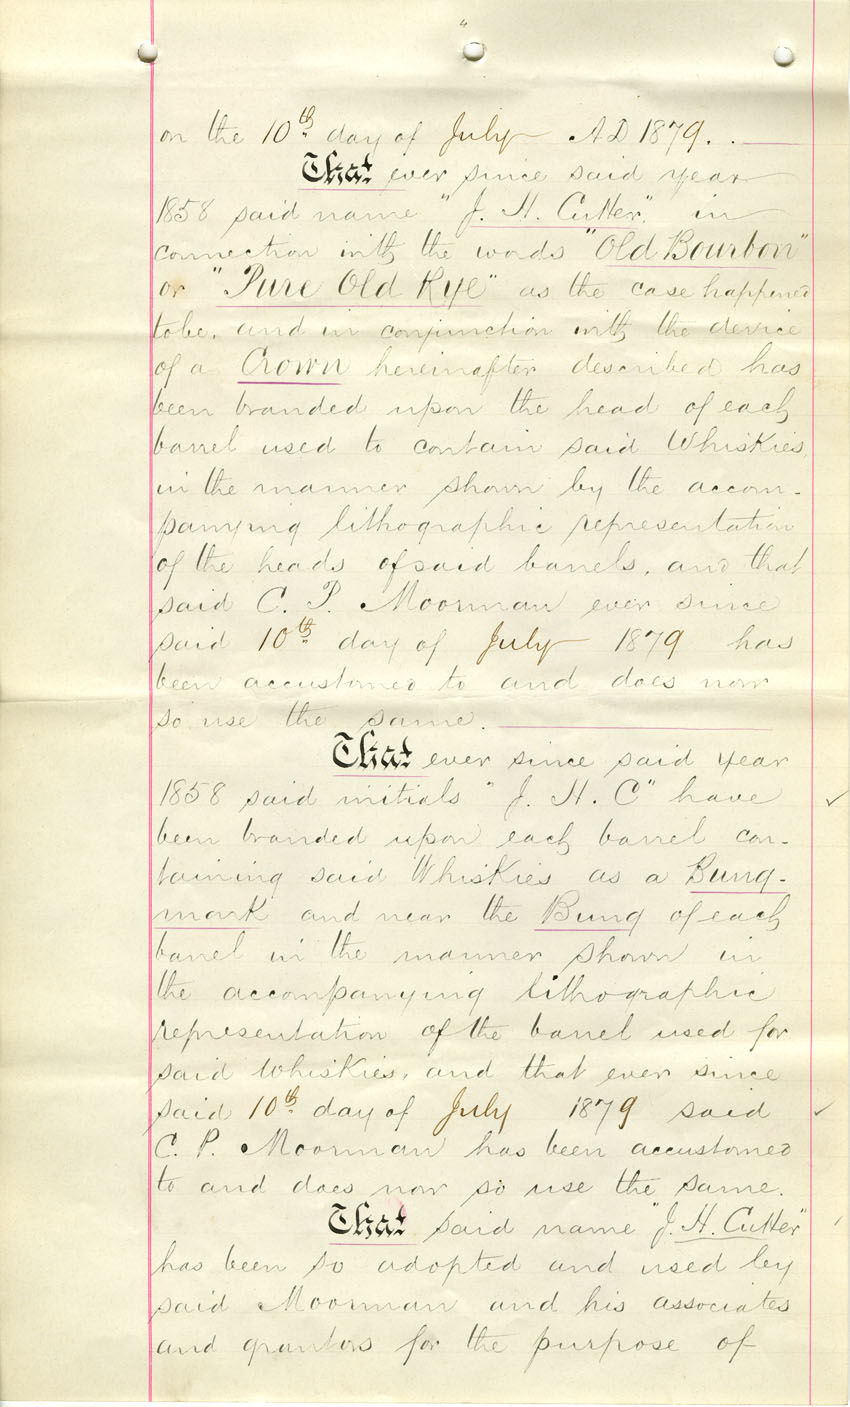 on the 10th day of July AD 1879.
That ever since said year
1858 said name "J. H. Cutter", in
connection with the words "Old Bourbon"
or "Pure Old Rye" as the case happened
to be, and in conjunction with the device
of a Crown hereinafter described has
been branded upon the head of each
barrel used to contain said Whiskies,
in the manner shown by the accom-
panying lithographic representation
of the heads of said barrels, and that
said C. P. Moorman ever since
said 10th day of July 1879 has
been accustomed to and does now
so use the same.
That ever since said year
1858 said initials "J. H. C" have
been branded upon each barrel con-
taining said Whiskies as a Bung-
mark and near the Bung of each
barrel in the manner shown in
the accompanying lithographic
representation of the barrel used for
said Whiskies, and that ever since
said 10th day of July 1879 said
C. P. Moorman has been accustomed
to and does now so use the same.
That said name "J. H. Cutter"
has been so adopted and used by
said Moorman and his associates
and grantors for the purpose of